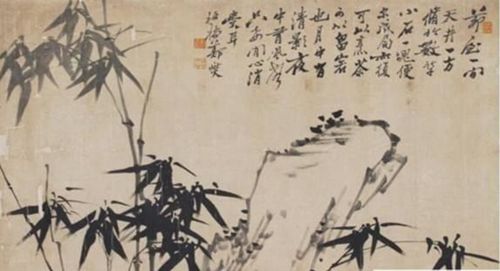 茅屋一間
天井一方
脩竹數竿
小石一塊便
尔成局亦復
可以烹茶
可以留客
也月中有
清影夜
中有風聲
只要閑心消
受耳
板橋鄭燮